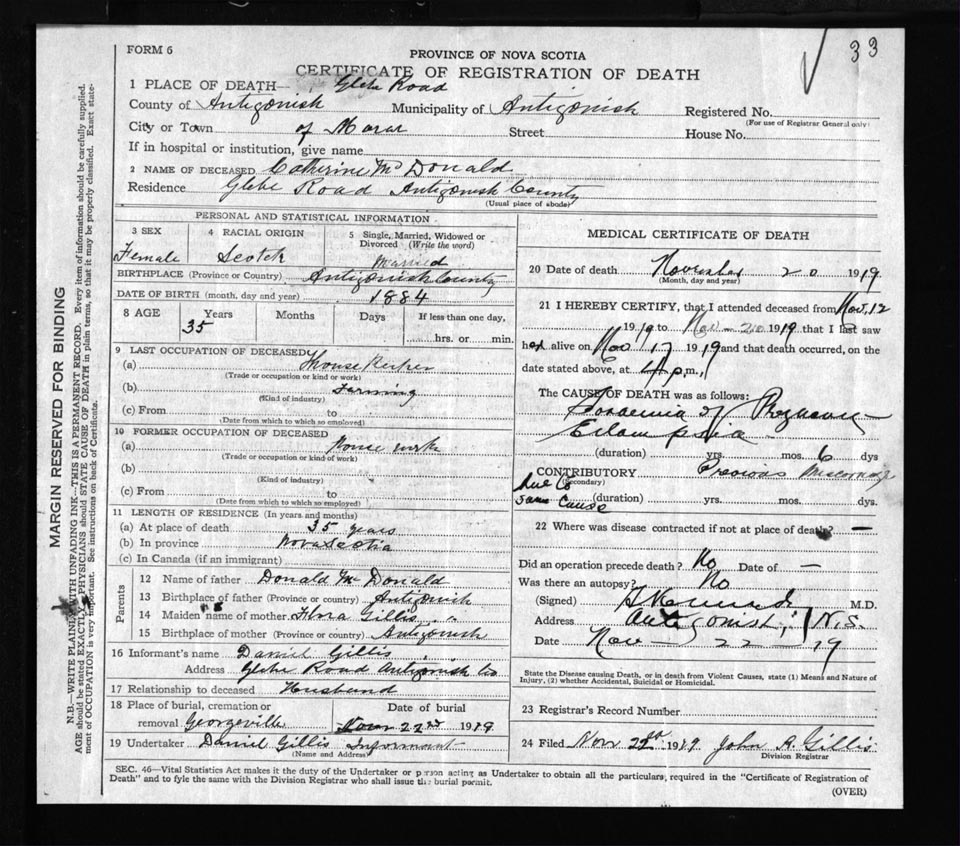 33
FORM 6
PROVINCE OF NOVA SCOTIA
CERTIFICATE OF REGISTRATION OF DEATH
1 PLACE OF DEATH— Glebe Road
County of Antigonish Municipality of Antigonish Registered No.
(For use of Registrar General only)
City or Town of Morar Street House No.
If in hospital or institution, give name
2 NAME OF DECEASED Catherine McDonald
Residence Glebe Road Antigonish County
(Usual place of abode)
PERSONAL AND STATISTICAL INFORMATION
3 SEX 4 RACIAL ORIGIN 5 Single, Married, Widowed or Divorced (Write the word)
Female Scotch Married
BIRTHPLACE (Province or Country) Antigonish County
DATE OF BIRTH (month, day and year) 1884
8 AGE Years Months Days If less than one day,
35 hrs. or min.
9 LAST OCCUPATION OF DECEASED
(a) House Keeper
(Trade or occupation or kind or work)
(b) Farming
(Kind of industry)
(c) From to
(Date from which to which so employed)
10 FORMER OCCUPATION OF DECEASED
(a) House work
(Trade or occupation or kind of work)
(b)
(Kind of industry)
(c) From to
(Date from which to which so employed)
11 LENGTH OF RESIDENCE (In years and months)
(a) At place of death 35 years
(b) In province Nova Scotia
(c) In Canada (if an immigrant)
Parents
12 Name of father Donald McDonald
13 Birthplace of father (Province or country) Antigonish
14 Maiden name of mother Flora Gillis " "
15 Birthplace of mother (Province or country) Antigonish
16 Informant's name Daniel Gillis
Address Glebe Road Antigonish Co
17 Relationship to deceased Husband
18 Place of burial, cremation or removal Georgeville Date of burial Nov 22nd 1919
19 Undertaker Daniel Gillis Informant
(Name and Address)
MEDICAL CERTIFICATE OF DEATH
20 Date of death November 20 1919
(Month, day and year)
21 I HEREBY CERTIFY, that I attended deceased from Nov. 12
1919 to Nov - 20 1919 that I last saw
her alive on Nov 17 1919 and that death occurred, on the
date stated above, at 4 p.m.,
The CAUSE OF DEATH was as follows:
Toxaemia of Pregnancy
Eclampsia
(duration) yrs. mos. 6 dys
CONTRIBUTORY Previous Miscarriage
(Secondary)
due to
same cause (duration) yrs. mos. dys.
22 Where was disease contracted if not at place of death? —
Did an operation precede death? No Date of —
Was there an autopsy? No
(Signed) M.D.
Address Antigonish, N.S.
Date Nov — 22 — 19
State the Disease causing Death, or in death from Violent Causes, state (1) Means and Nature of
Injury, (2) whether Accidental, Suicidal or Homicidal.
23 Registrar's Record Number
24 Filed Nov 22nd 1919 John A. Gillis.
Division Registrar
SEC. 46—Vital Statistics Act makes it the duty of the Undertaker or person acting as Undertaker to obtain all the particulars, required in the "Certificate of Registration of
Death" and to fyle the same with the Division Registrar who shall issue the burial permit.
(OVER)
MARGIN RESERVED FOR BINDING
N.B.—WRITE PLAINLY, WITH UNFADING INK—THIS IS A PERMANENT RECORD. Every item of information should be carefully supplied.
AGE should be stated EXACTLY. PHYSICIANS should STATE CAUSE OF DEATH in plain terms, so that it may be properly classified. Exact state-
ment of OCCUPATION is very important. See instructions on back of Certificates.